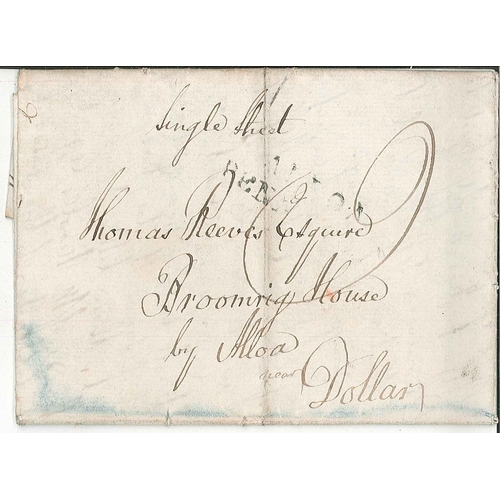 Single Sheet
Thomas Reeves Esquire
Broomrig House
by Alloa
near Dollar